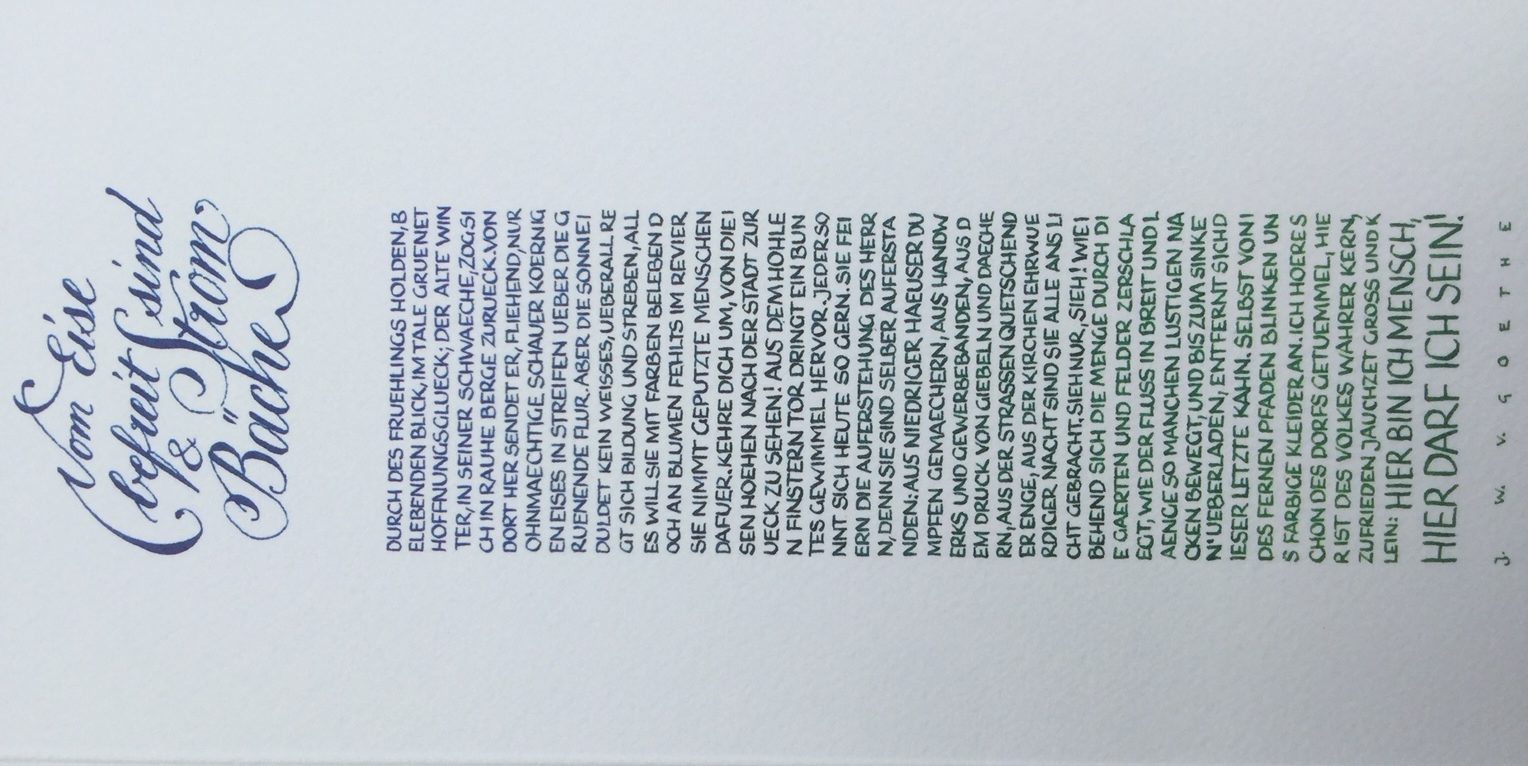 Vom Eise
befreit sind
& Strom
Bäche
DURCH DES FRUEHLINGS HOLDEN, B
ELEBENDEN BLICK, IM TALE GRUENET
HOFFNUNGSGLUECK; DER ALTE WIN
TER, IN SEINER SCHWAECHE, ZOG SI
CH IN RAUHE BERGE ZURUECK. VON
DORT HER SENDET ER, FLIEHEND, NUR
OHNMAECHTIGE SCHAUER KOERNIG
EN EISES IN STREIFEN UEBER DIE G
RUENENDE FLUR. ABER DIE SONNE I
DULDET KEIN WEISSES, UEBERALL RE
GT SICH BILDUNG UND STREBEN, ALL
ES WILL SIE MIT FARBEN BELEBEN D
OCH AN BLUMEN FEHLTS IM REVIER
SIE NIMMT GEPUTZTE MENSCHEN
DAFUER. KEHRE DICH UM, VON DIE I
SEN HOEHEN NACH DER STADT ZUR
UECK ZU SEHEN! AUS DEM HOHLE
N FINSTERN TOR DRINGT EIN BUN
TES GEWIMMEL HERVOR. JEDER SO
NNT SICH HEUTE SO GERN. SIE FEI
ERN DIE AUFERSTEHUNG DES HERR
N, DENN SIE SIND SELBER AUFERSTA
NDEN: AUS NIEDRIGER HAEUSER DU
MPFEN GEMAECHERN, AUS HANDW
ERKS UND GEWERBEBANDEN, AUS D
EM DRUCK VON GIEBELN UND DAECHE
RN, AUS DER STRASSEN QUETSCHEND
ER ENGE, AUS DER KIRCHEN EHRWUE
RDIGER NACHT SIND SIE ALLE ANS LI
CHT GEBRACHT, SIEH NUR, SIEH! WIE I
BEHEND SICH DIE MENGE DURCH DI
E GAERTEN UND FELDER ZERSCHLA
EGT, WIE DER FLUSS IN BREIT UND L
AENGE SO MANCHEN LUSTIGEN NA
CKEN BEWEGT, UND BIS ZUM SINKE
N UEBERLADEN, ENTFERNT SICH D
IESER LETZTE KAHN. SELBST VON I
DES FERNEN PFADEN BLINKEN UN
S FARBIGE KLEIDER AN. ICH HOERE S
CHON DES DORFS GETUEMMEL, HIE
R IST DES VOLKES WAHRER KERN,
ZUFRIEDEN JAUCHZET GROSS UND K
LEIN: HIER BIN ICH MENSCH,
HIER DARF ICH SEIN!
J. W. V. GOETHE